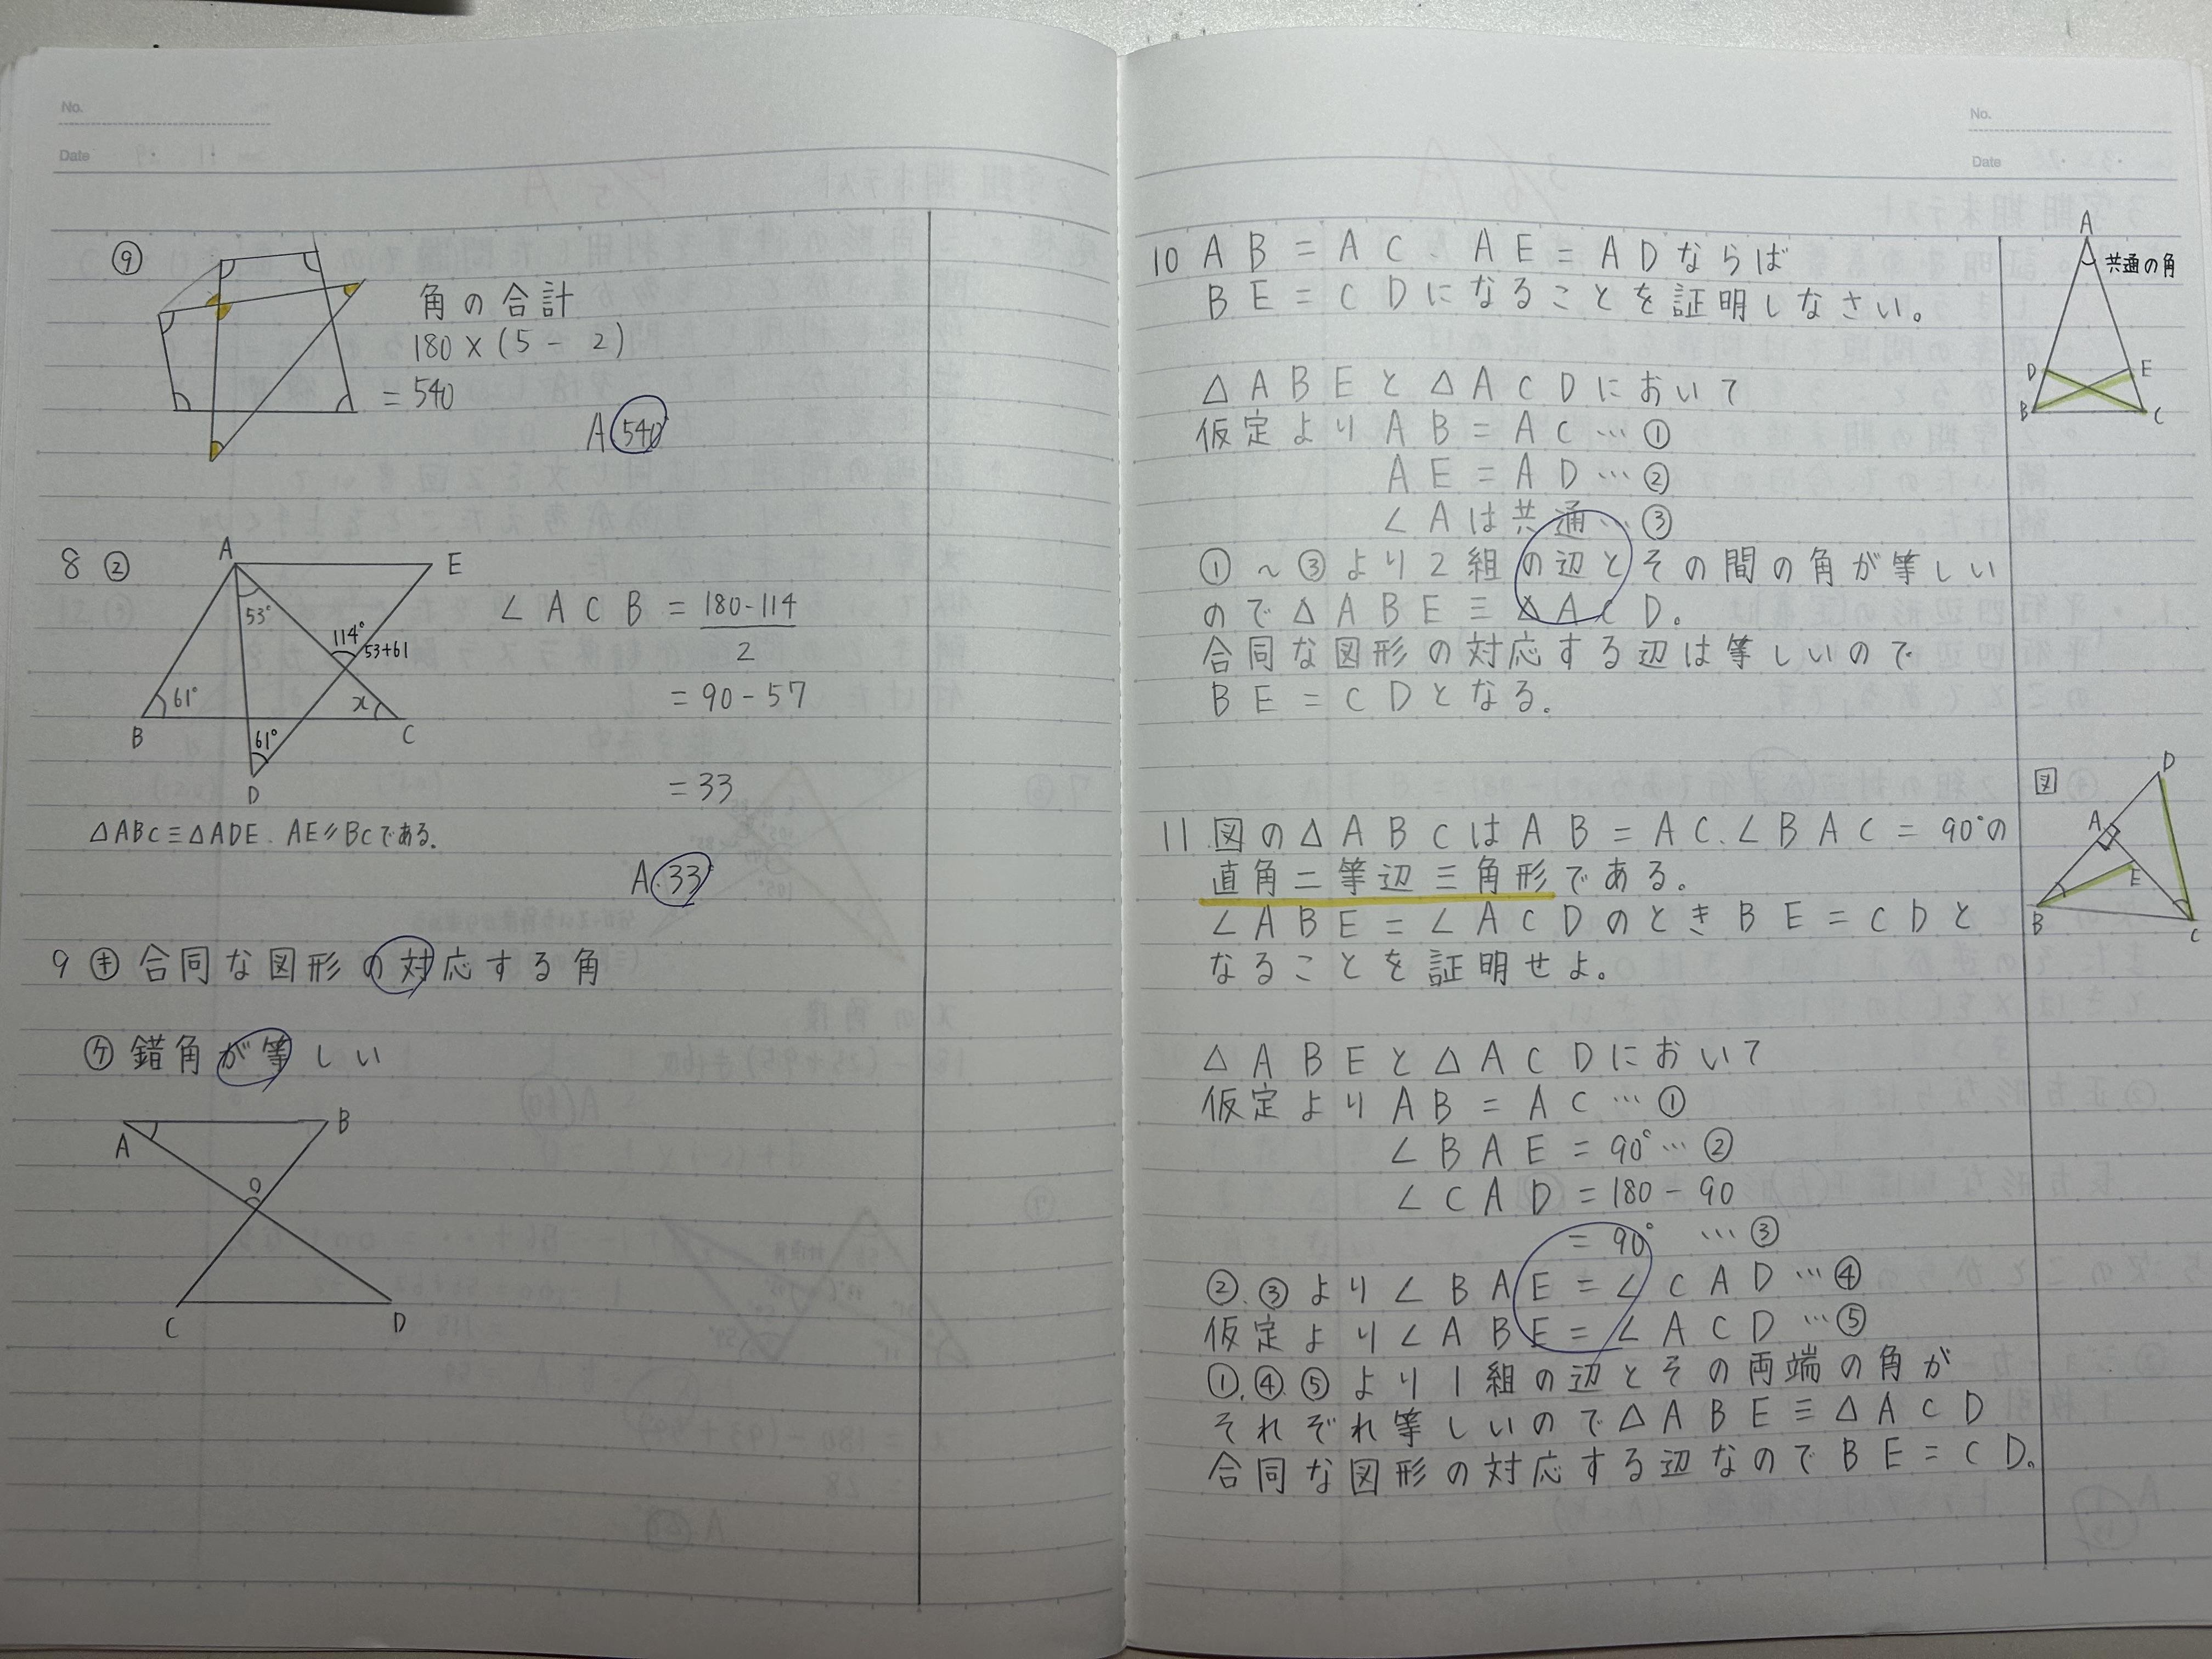 No.
Date
⑨
角の合計
180×(5-2)
=540
A 540°
8 ②
A
E
53°
114°
53+61
61°
x
B
C
61°
D
∠ACB = 180-114
2
= 90-57
= 33
△ABC≡△ADE、AE∥BCである。
A.33°
9 ㋖ 合同な図形の対応する角
㋘ 錯角が等しい
A
B
O
C
D
No.
Date
10 AB=AC、AE=ADならば
BE=CDになることを証明しなさい。
A
共通の角
D
E
B
C
△ABEと△ACDにおいて
仮定よりAB=AC…①
AE=AD…②
∠Aは共通…③
①~③より2組の辺とその間の角が等しい
ので△ABE≡△ACD。
合同な図形の対応する辺は等しいので
BE=CDとなる。
図
D
A
E
B
C
11.図の△ABCはAB=AC、∠BAC=90°の
直角二等辺三角形である。
∠ABE=∠ACDのときBE=CDと
なることを証明せよ。
△ABEと△ACDにおいて
仮定よりAB=AC…①
∠BAE=90°…②
∠CAD=180-90
=90° …③
②、③より∠BAE=∠CAD…④
仮定より∠ABE=∠ACD…⑤
①,④,⑤より1組の辺とその両端の角が
それぞれ等しいので△ABE≡△ACD
合同な図形の対応する辺なのでBE=CD。